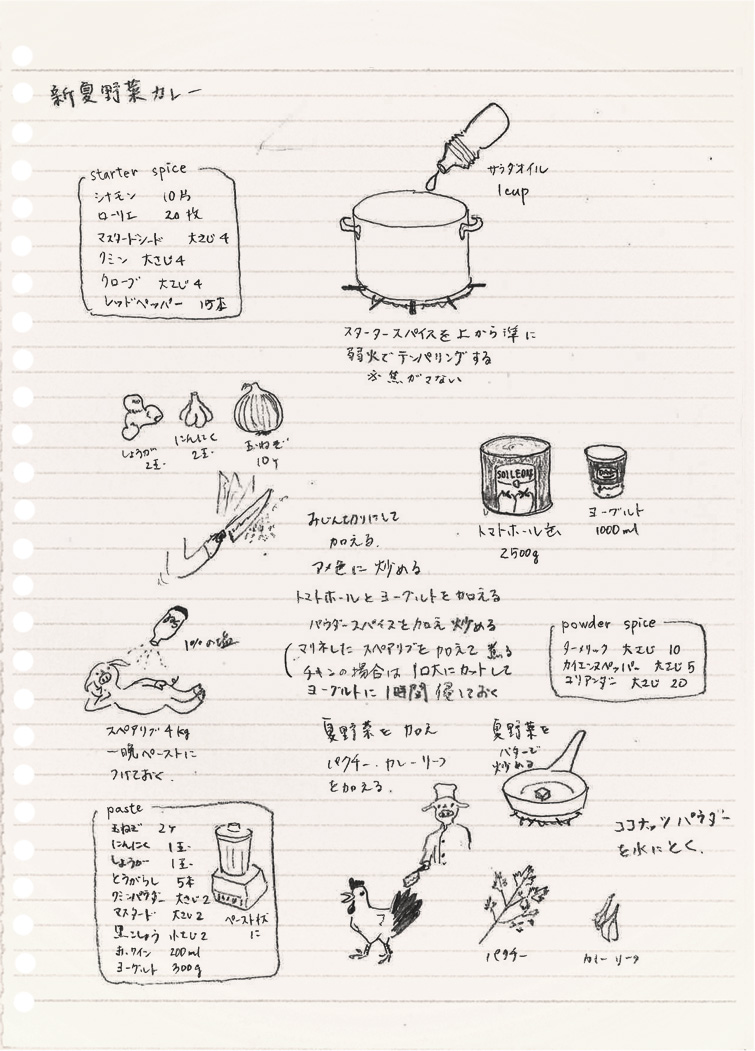 新夏野菜カレー
starter spice
シナモン 10片
ローリエ 20枚
マスタードシード 大さじ4
クミン 大さじ4
クローブ 大さじ4
レッドペッパー 15本
サラダオイル
1cup
スタータースパイスを上から準に
弱火でテンパリングする
※焦がさない
しょうが
2玉
にんにく
2玉
玉ねぎ
10ヶ
みじん切りにして
加える.
アメ色に炒める
トマトホール缶
2500g
ヨーグルト
1000ml
トマトホールとヨーグルトを加える
パウダースパイスを加え炒める
マリネしたスペアリブを加えて煮る
(チキンの場合は1口大にカットして
ヨーグルトに1時間侵しておく
powder spice
ターメリック 大さじ 10
カイエンヌペッパー 大さじ5
コリアンダー 大さじ 20
1%の塩
スペアリブ4kg
一晩ペーストに
つけておく.
夏野菜を加え
パクチー.カレーリーフ
を加える.
夏野菜を
バターで
炒める
ココナッツパウダー
を水にとく.
paste
玉ねぎ 2ヶ
にんにく 1玉
しょうが 1玉
とうがらし 5本
クミンパウダー 大さじ2
マスタード 大さじ2
黒こしょう 小さじ2
赤ワイン 200ml
ヨーグルト 300g
ペースト状
に
パクチー
カレーリーフ